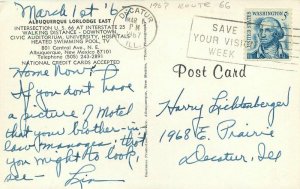 March 1st '6
ALBUQUERQUE LORLODGE EAST
INTERSECTION U. S. 66 AT INTERSTATE 25
WALKING DISTANCE - DOWNTOWN
CIVIC AUDITORIUM, UNIVERSITY, HOSPITALS
HEATED SWIMMING POOL, TV
801 Central Ave., N. E.
Albuquerque, New Mexico 87101
Telephone (505) 243-2891
NATIONAL CREDIT CARDS ACCEPTED
Home Now!
If you don't have
a picture of Motel
that your brother-in-
law manages, that
you might to look,
see —
DECATUR
MAR
PM
1967
ILL.
1967 ROUTE 66
SAVE
YOUR VISION
WEEK
WASHINGTON
5¢
Post Card
Harry Lichtenberger
1968 E. Prairie
Decatur, Ill